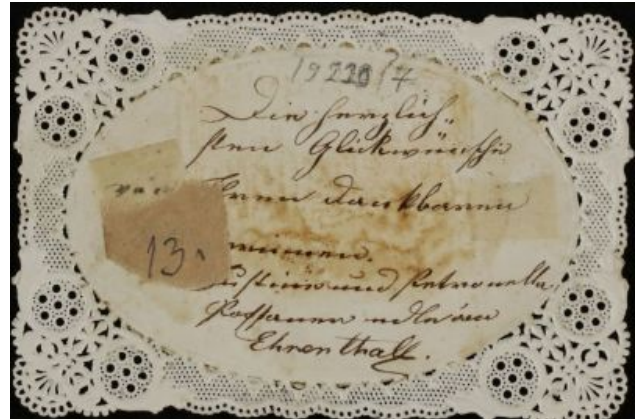 19220/7
Die herzlich-
sten Glückwünsche
von Ihren dankbaren
13.
Justine und Petronella
Edle von
Ehrenthall.